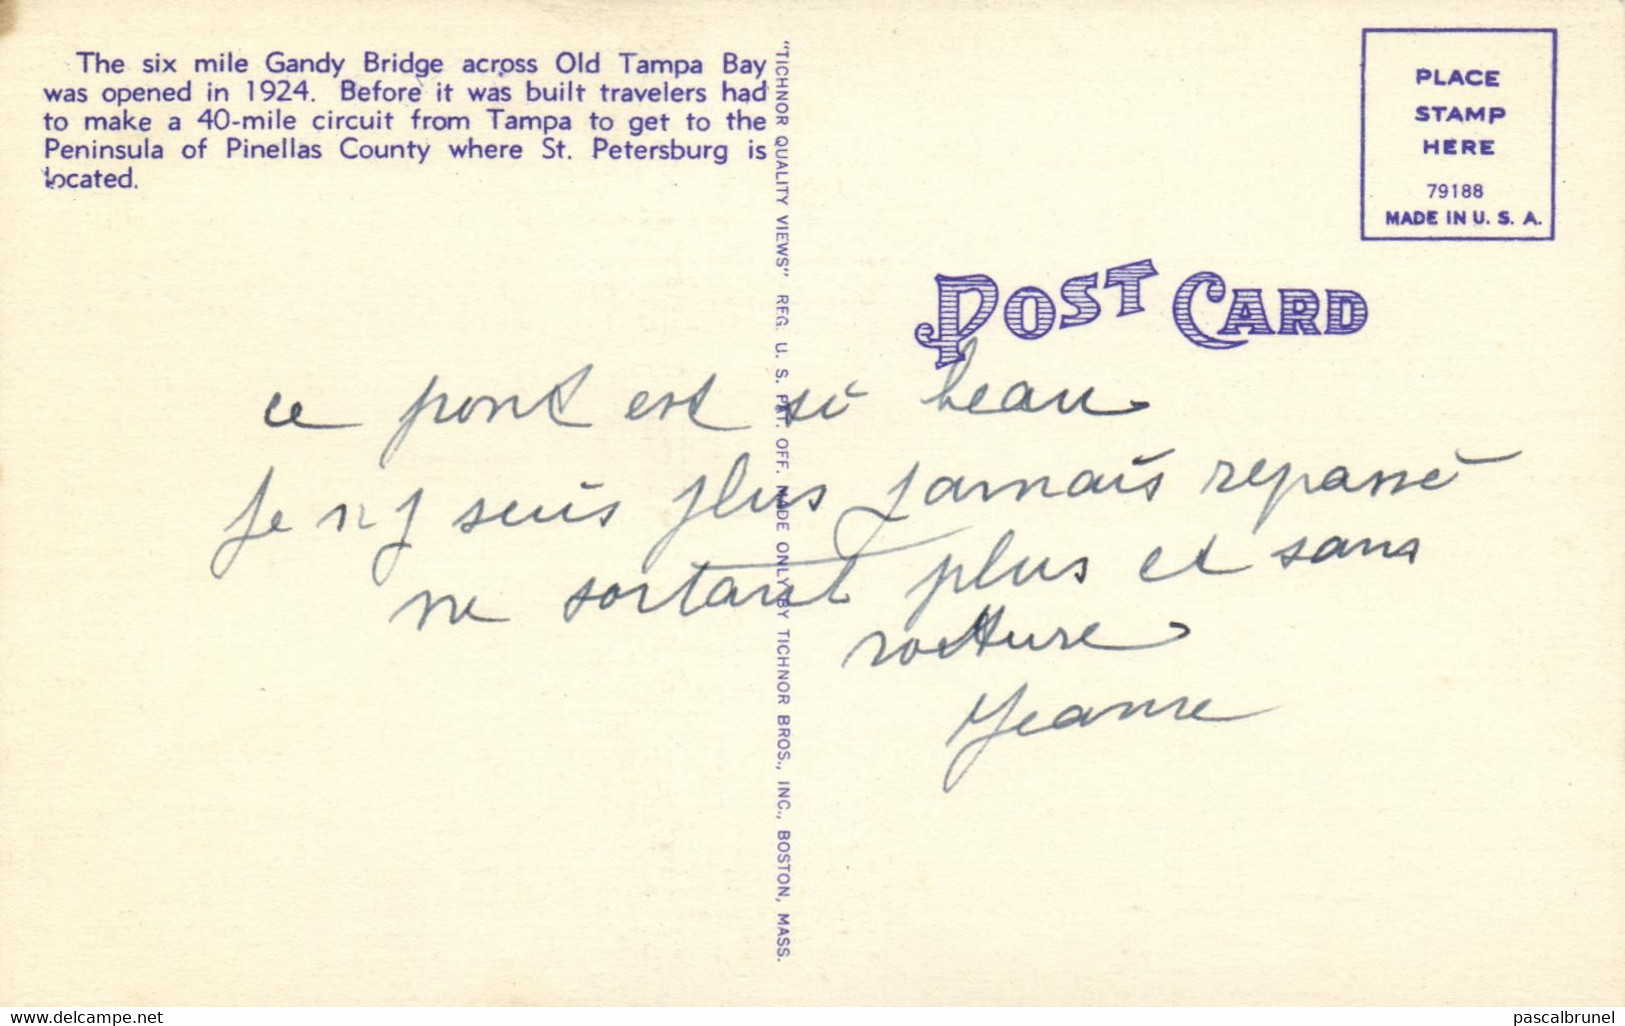 The six mile Gandy Bridge across Old Tampa Bay
was opened in 1924. Before it was built travelers had
to make a 40-mile circuit from Tampa to get to the
Peninsula of Pinellas County where St. Petersburg is
located.
"TICHNOR QUALITY VIEWS" REG. U. S. PAT. OFF. MADE ONLY BY TICHNOR BROS., INC., BOSTON, MASS.
PLACE
STAMP
HERE
79188
MADE IN U. S. A.
POST CARD
ce pont est si beau
Je n y suis plus jamais repassé
ne sortant plus et sans
voiture
Jeanne
www.delcampe.net
pascalbrunel